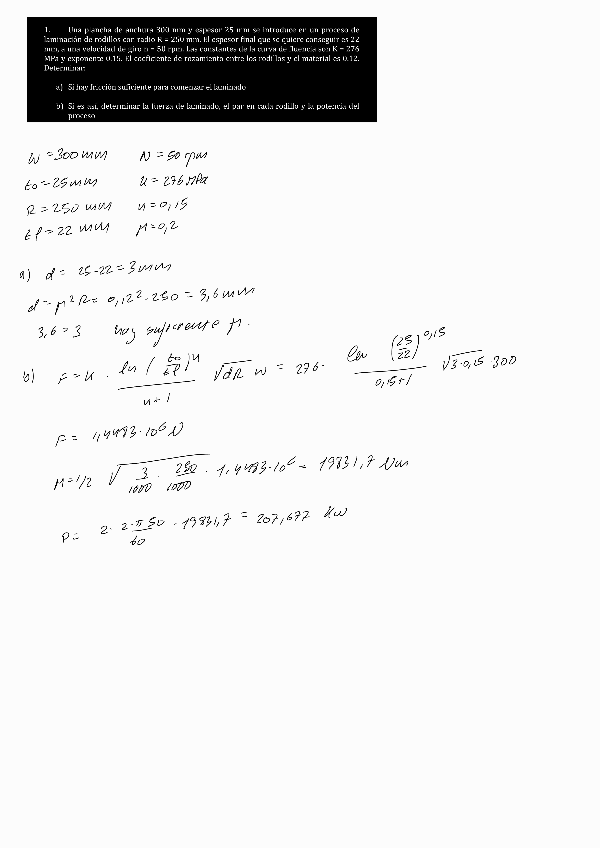 1. Una plancha de anchura 300 mm y espesor 25 mm se introduce en un proceso de
laminación de rodillos con radio R = 250 mm. El espesor final que se quiere conseguir es 22
mm, a una velocidad de giro n = 50 rpm. Las constantes de la curva de fluencia son K = 276
MPa y exponente 0.15. El coeficiente de rozamiento entre los rodillos y el material es 0.12.
Determinar:
a) Si hay fricción suficiente para comenzar el laminado
b) Si es así, determinar la fuerza de laminado, el par en cada rodillo y la potencia del
proceso
W = 300 mm N = 50 rpm
to = 25 mm K = 276 MPa
R = 250 mm n = 0,15
tf = 22 mm μ = 0,2
a) d = 25-22 = 3 mm
d = μ² R = 0,12² · 250 = 3,6 mm
3,6 > 3 hay suficiente μ.
b) F = K · ln (to/tf)^n / n+1 √dR w = 276 · ln (25/22)^0,15 / 0,15+1 √3·0,15 300
F = 1,4483·10^6 N
M = 1/2 √3/1000 · 250/1000 · 1,4483·10^6 = 19831,7 Nm
P = 2 · 2·π 50/60 · 19831,7 = 207,677 Kw